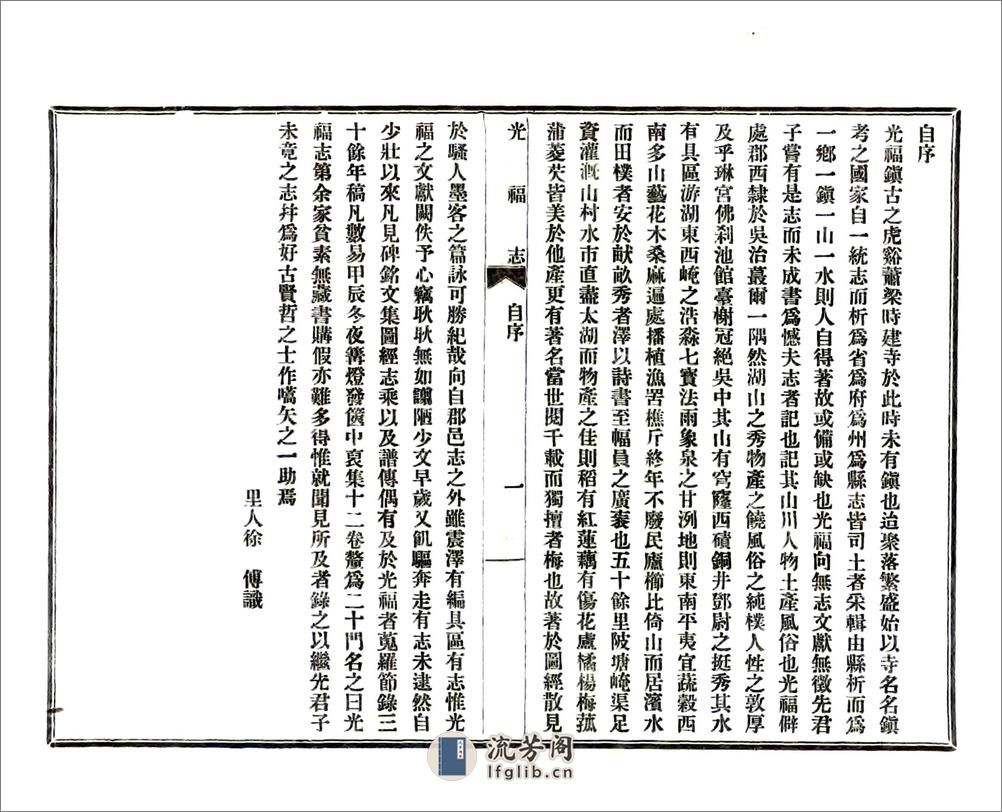 自序
光福鎭古之虎谿蕭梁時建寺於此時未有鎭也迨聚落繁盛始以寺名名鎭
考之國家自一統志而析爲省爲府爲州爲縣志皆司土者采輯由縣析而爲
一鄕一鎭一山一水則人自得著故或備或缺也光福向無志文獻無徵先君
子嘗有是志而未成書爲憾夫志者記也記其山川人物土產風俗也光福僻
處郡西隸於吳治蕞爾一隅然湖山之秀物產之饒風俗之純樸人性之敦厚
及乎琳宮佛刹池館臺榭冠絕吳中其山有穹窿西磧銅井鄧尉之挺秀其水
有具區游湖東西崦之浩淼七寶法雨象泉之甘洌地則東南平夷宜蔬穀西
南多山藝花木桑麻遍處播植漁罟樵斤終年不廢民廬櫛比倚山而居濱水
而田樸者安於畎畝秀者澤以詩書至幅員之廣袤也五十餘里陂塘崦渠足
資灌漑山村水市直盡太湖而物產之佳則稻有紅蓮藕有傷花盧橘楊梅菰
蒲菱芡皆美於他產更有著名當世閱千載而獨擅者梅也故著於圖經散見
光福志
自序
一
於騷人墨客之篇詠可勝紀哉向自郡邑志之外雖震澤有編具區有志惟光
福之文獻闕佚予心竊耿耿無如謭陋少文早歲又飢驅奔走有志未逮然自
少壯以來凡見碑銘文集圖經志乘以及譜傳偶有及於光福者蒐羅節錄三
十餘年稿凡數易甲辰冬夜篝燈發篋中裒集十二卷釐爲二十門名之曰光
福志第余家貧素無藏書購假亦難多得惟就聞見所及者錄之以繼先君子
未竟之志幷爲好古賢哲之士作嚆矢之一助焉
里人徐 傅識
流芳阁
lfglib.cn